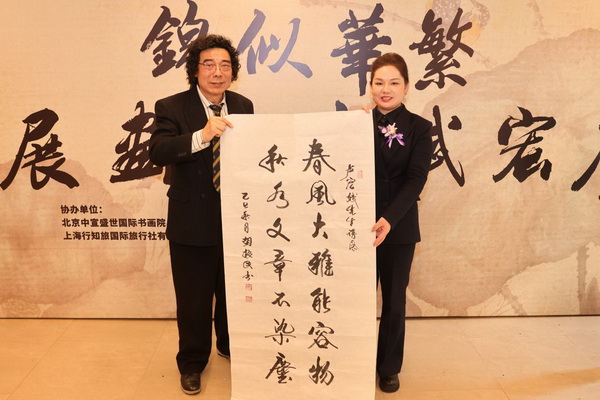 繁華似錦
宏斌
畫展
协办单位：
北京中宣盛世国际书画院
上海行知旅国际旅行社有
卢宏斌先生
春風大雅能容物
秋水文章不染塵
乙巳